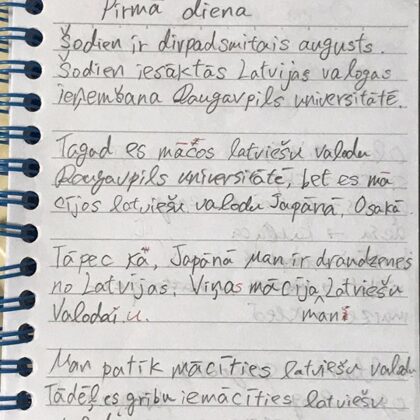 Pirmā diena
Šodien ir divpadsmitais augusts.
Šodien iesāktās Latvijas valogas
ieņemšana Daugavpils universitātē.
Tagad es mācos latviešu valodu
Daugavpils universitātē, bet es mā
cījos latviešu valodu Japānā, Osakā
Tāpec kā, Japānā man ir draudzenes
no Latvijas. Viņas mācīja Latviešu
Valodai u. mani
Man patīk mācīties latviešu valodu
Tādēļ es gribu iemācīties latviešu